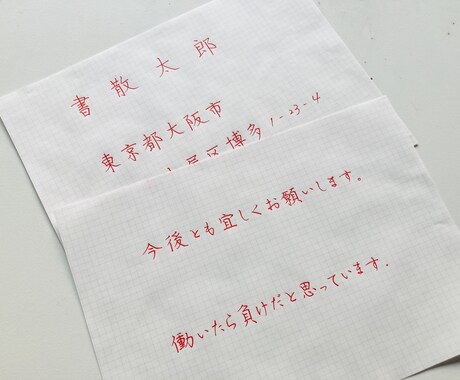 書散太郎
東京都大阪市
屋区博多1-23-4
今後とも宜しくお願いします。
働いたら負けだと思っています.